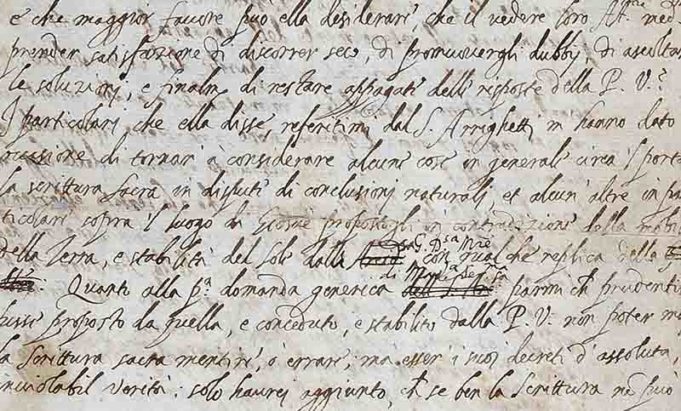 e che maggior favore può ella desiderare, che il vedere loro Altᵐᵉ med
prender satisfazione di discorrer seco, di promuovergli dubbi, di ascoltar
le soluzioni, e finalmᵉ di restare appagati delle risposte della P. V.ᵗᵃ
I particolari che ella disse, referitimi dal S. Arrighetti, m'hanno dato
casione di tornare a considerare alcune cose in generale circa 'l porta
la scrittura sacra in dispute di conclusioni naturali, et alcun'altre in par
ticolare sopra 'l luogo di Giosuè propostogli in contradizione della mobil
della Terra, e stabilità del Sole dalla G. D.ˢᵃ Mᵈʳᵉ con qualche replica della
di Mad.ᵃ Ser.ˢᵃ
Quanto alla p.ᵃ domanda generica parmi che prudentis
fusse proposto da quella, e conceduto, e stabilito dalla P. V. non poter mai
la Scrittura sacra mentire, o errare, ma esser i suoi decreti d'assoluta,
inviolabil verità: solo haurei aggiunto, che se ben la Scrittura non può